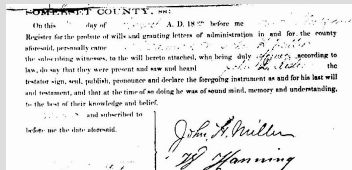 SOMERSET COUNTY, ss:
On this day of A. D. 18 before me
Register for the probate of wills and granting letters of administration in and for the county
aforesaid, personally came
the subscribing witnesses, to the will hereto attached, who being duly according to
law, do say that they were present and saw and heard the
testator sign, seal, publish, pronounce and declare the foregoing instrument as and for his last will
and testament, and that at the time of so doing he was of sound mind, memory and understanding,
to the best of their knowledge and belief.
and subscribed to
before me the date aforesaid.
John H. Miller
W Hanning